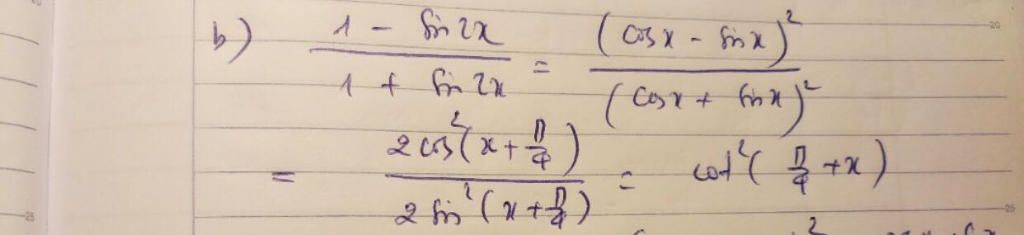 b) (1 - sin 2x)/(1 + sin 2x) = (cos x - sin x)²/(cos x + sin x)²
= 2 cos²(x + π/4)/2 sin²(x + π/4) = cot²(π/4 + x)